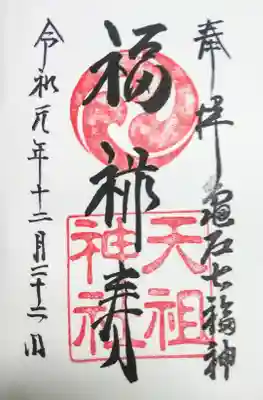 奉拝 亀戸七福神
福禄寿
天祖神社
令和元年十二月二十二日